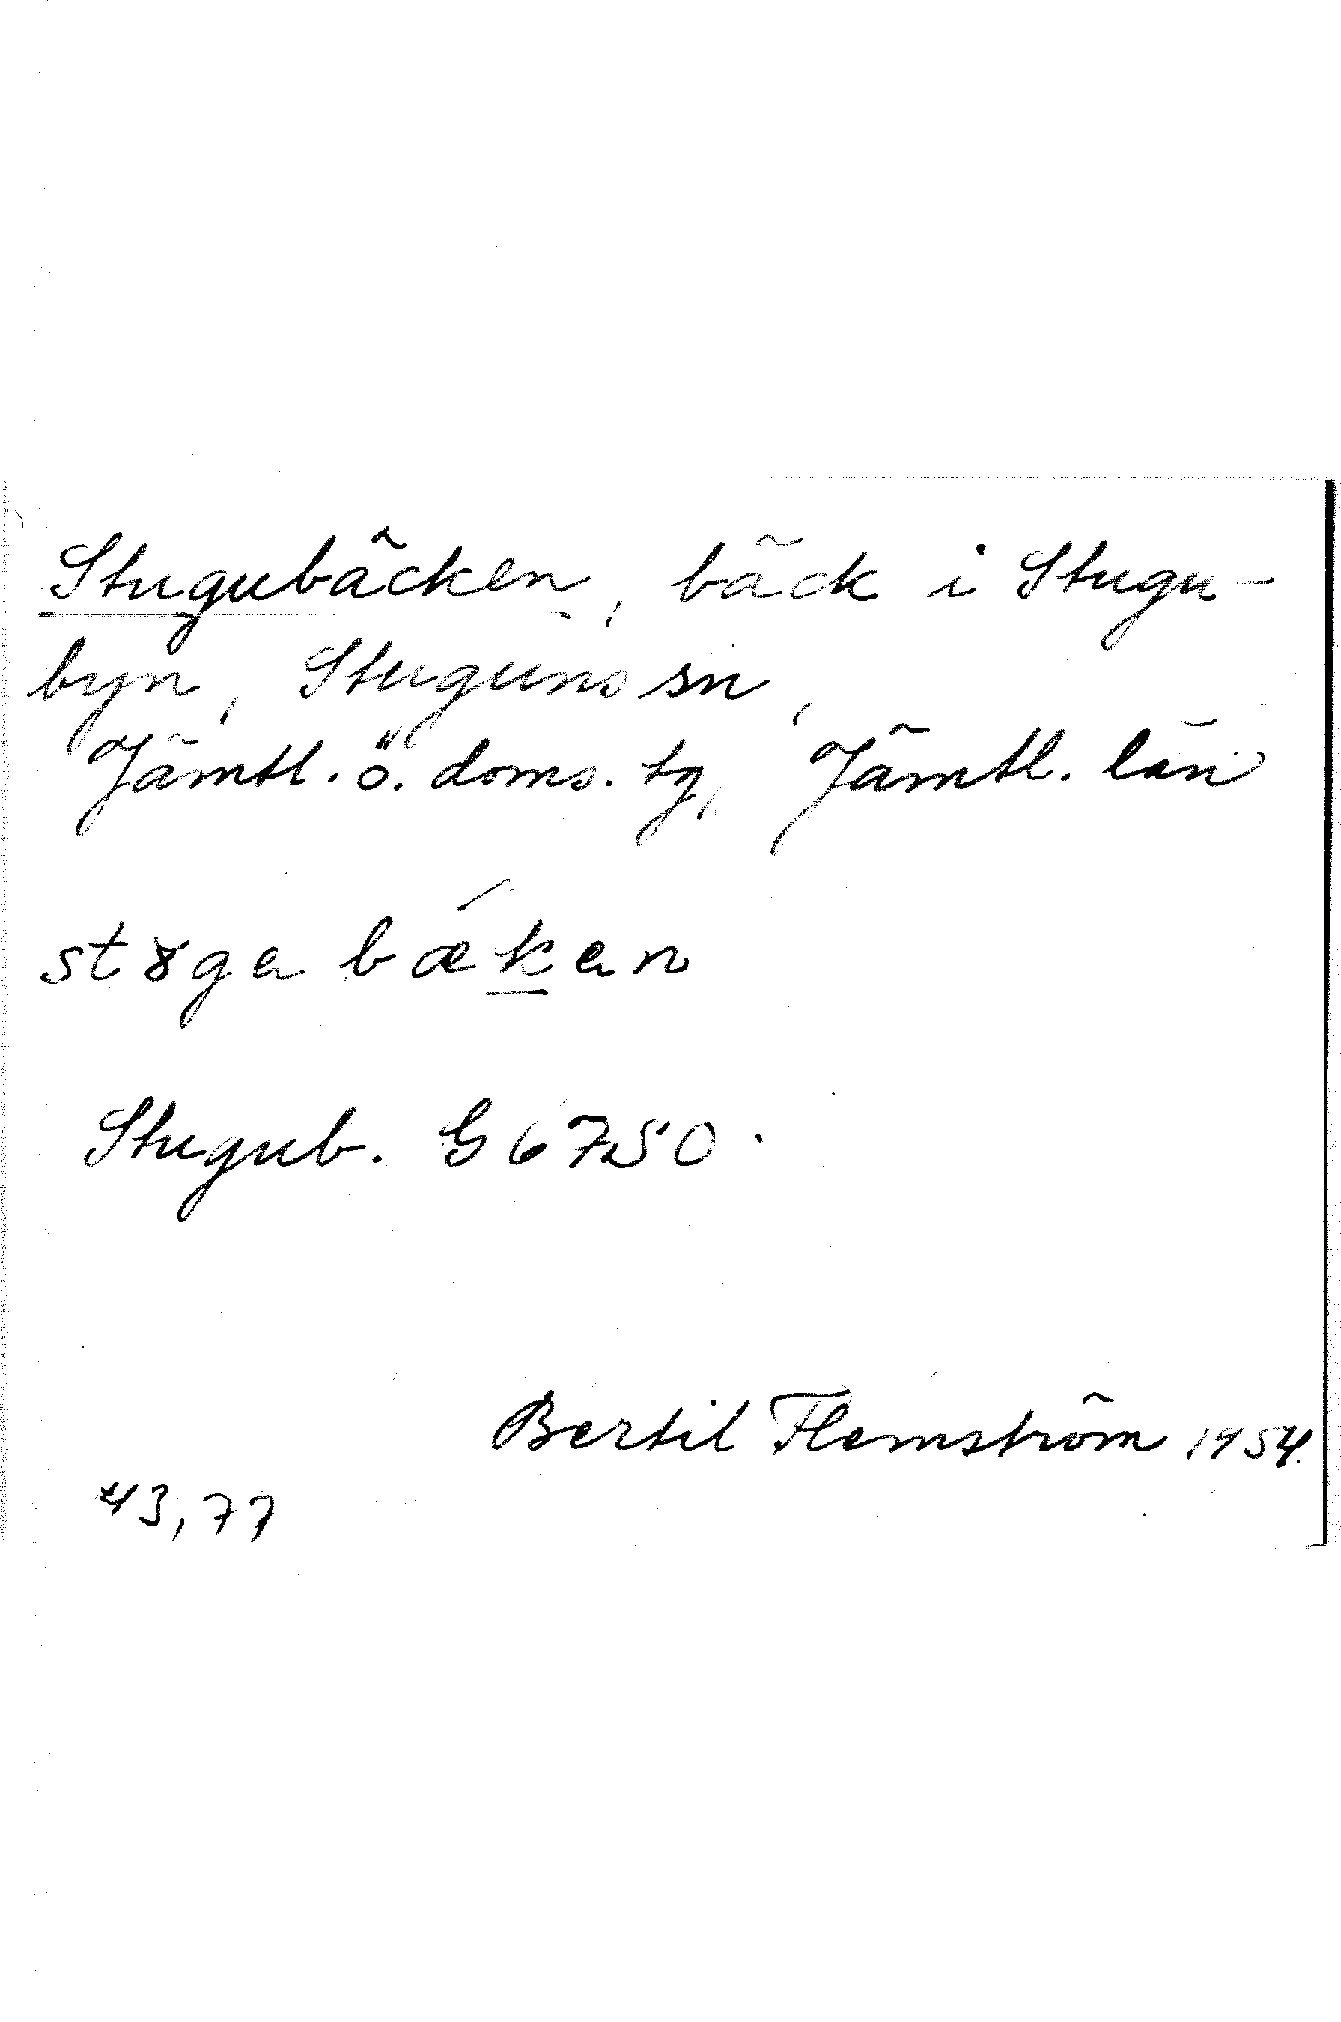 Stugubäcken, bäck i Stugu-
byn, Stuguns sn,
Jämtl. ö. doms. tg, Jämtl. län
stȣga bǽkan
Stugub. G 6750.
Bertil Flemström 1954.
43,77